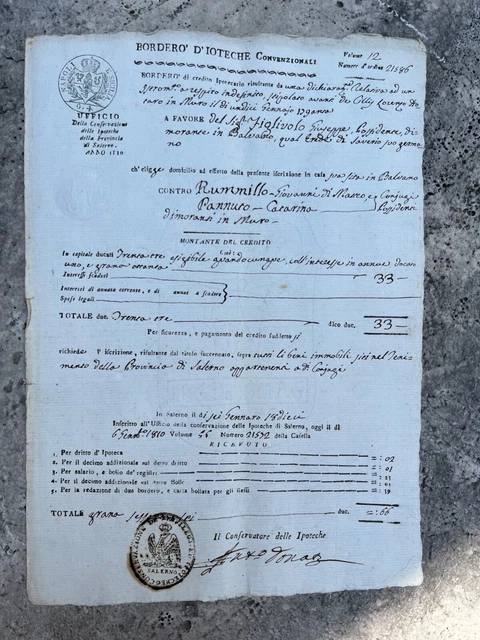 BORDERO' D'IOTECHE CONVENZIONALI
Volume 12
Numero d'ordine 21586
NAPOLI
G. 4
UFFICIO
Della Conservazione
delle Ipoteche
della Provincia
di Salerno.
ANNO 1810
BORDERO' di credito Ipotecario risultante da una dichiaraz.
in Muro il dì undici Gennajo
A FAVORE del Sig. Giuseppe, Possidente, di
moranse in Balvano, qual Erede di Saverio suo germa
no
ch' elige domicilio ad effetto della presente iscrizione in casa sua sita in Balvano
CONTRO Rummillo Giovanni di Mauro, e Conjugi
Pannuto Catarina Possidenti
dimoranti in Muro
MONTANTE DEL CREDITO
In capitale ducati Trenta tre esigibile quandocunque, coll'interesse in annue docato
uno, e grana ottanta
Interessi scaduti
33
Interessi di annata corrente, e di annui a scadere
Spese legali
TOTALE duc. Trenta tre dico duc. 33
Per sicurezza, e pagamento del credito suddetto si
richiede l' iscrizione, risultante dal titolo succennato, sopra tutti li beni immobili siti nel Teni-
mento della Provincia di Salerno appartenenti a d.i Conjugi
In Salerno il dì sei Gennaro 18dieci
Inscritto all' Uffizio della conservazione delle Ipoteche di Salerno, oggi il dì
6 Gennaro 1810 Volume Numero 21572 della Casella
RICEVUTO
1. Per dritto d' Ipoteca =: 02
2. Per il decimo addizionale sul detto dritto =: 01
3. Per salario, e bollo de' registri
4. Per il decimo addizionale sul detto Bollo =: 01
5. Per la redazione di due bordero, e carta bollata per gli stessi =: 19
TOTALE grana sessanta sei duc. =: 66
Il Conservatore delle Ipoteche
SALERNO